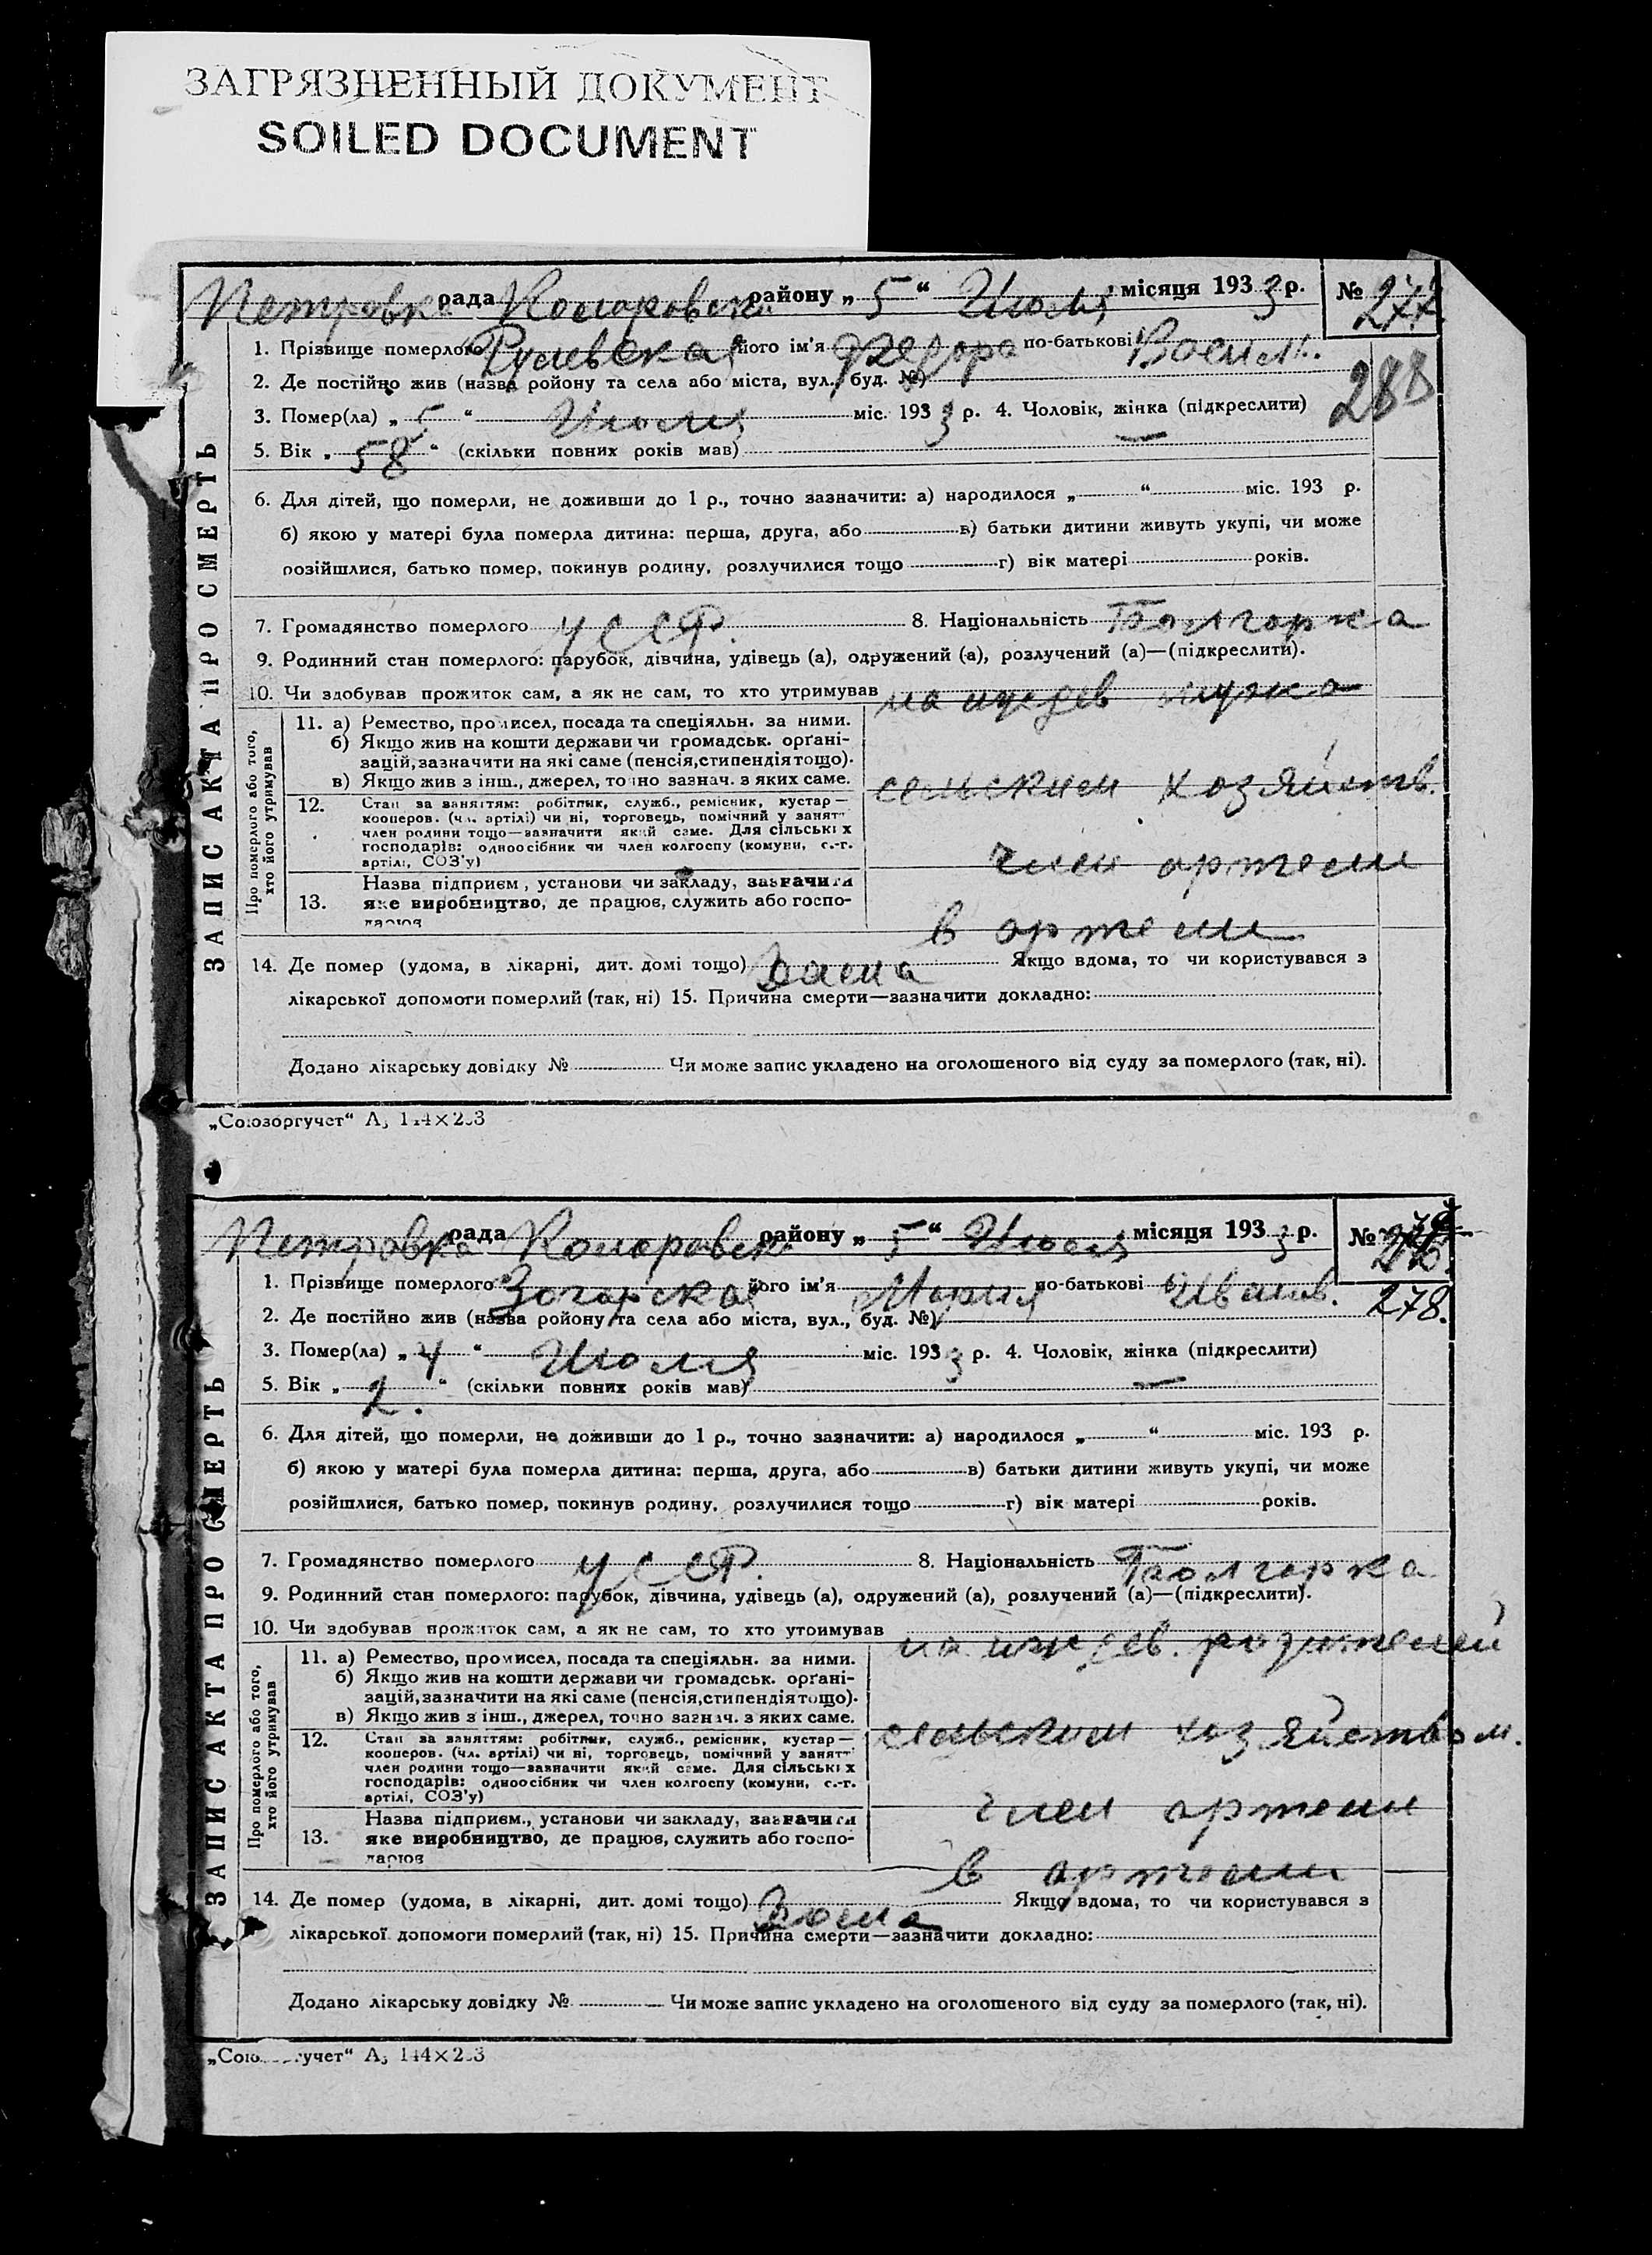 ЗАГРЯЗНЕННЫЙ ДОКУМЕНТ
SOILED DOCUMENT
Петровка рада Коларовска району „5“ Июля місяця 1933 р. № 277.
ЗАПИС АКТА ПРО СМЕРТЬ
1. Прізвище померлого Русевская його ім'я Федора по-батькові
288
2. Де постійно жив (назва ройону та села або міста, вул., буд. №)
3. Помер(ла) „5“ Июля міс. 1933 р. 4. Чоловік, жінка (підкреслити)
5. Вік „58“ (скільки повних років мав)
6. Для дітей, що померли, не доживши до 1 р., точно зазначити: а) народилося „ “ міс. 193 р.
б) якою у матері була померла дитина: перша, друга, або в) батьки дитини живуть укупі, чи може
розійшлися, батько помер, покинув родину, розлучилися тощо г) вік матері років.
7. Громадянство померлого УССР. 8. Національність Болгорка
9. Родинний стан померлого: парубок, дівчина, удівець (а), одружений (а), розлучений (а)—(підкреслити).
10. Чи здобував прожиток сам, а як не сам, то хто утримував на иждев мужа
Про померлого або того, хто його утримував
11. а) Ремество, промисел, посада та спеціяльн. за ними.
б) Якщо жив на кошти держави чи громадськ. орґані-
зацій, зазначити на які саме (пенсія, стипендія тощо).
в) Якщо жив з інш., джерел, точно зазнач. з яких саме.
сельским хозяйств.
12. Стан за заняттям: робітник, служб., ремісник, кустар—
кооперов. (чл. артілі) чи ні, торговець, помічний у занят
член родини тощо—зазначити який саме. Для сільських
господарів: одноосібник чи член колгоспу (комуни, с.-г.
артілі, СОЗ'у)
член ортели
13. Назва підприєм., установи чи закладу, зазначити
яке виробництво, де працює, служить або госпо-
в ортели
14. Де помер (удома, в лікарні, дит. домі тощо) Дома Якщо вдома, то чи користувався з
лікарської допомоги померлий (так, ні) 15. Причина смерти—зазначити докладно:
Додано лікарську довідку № Чи може запис укладено на оголошеного від суду за померлого (так, ні).
„Союзоргучет“
Петровка рада Коларовск району „5“ Июля місяця 1933 р. №
ЗАПИС АКТА ПРО СМЕРТЬ
1. Прізвище померлого Зогорская його ім'я Мария по-батькові Иванов.
278.
2. Де постійно жив (назва ройону та села або міста, вул., буд. №)
3. Помер(ла) „4“ Июля міс. 1933 р. 4. Чоловік, жінка (підкреслити)
5. Вік „2.“ (скільки повних років мав)
6. Для дітей, що померли, не доживши до 1 р., точно зазначити: а) народилося „ “ міс. 193 р.
б) якою у матері була померла дитина: перша, друга, або в) батьки дитини живуть укупі, чи може
розійшлися, батько помер, покинув родину, розлучилися тощо г) вік матері років.
7. Громадянство померлого УССР. 8. Національність Болгорка
9. Родинний стан померлого: парубок, дівчина, удівець (а), одружений (а), розлучений (а)—(підкреслити).
10. Чи здобував прожиток сам, а як не сам, то хто утримував на иждев. родителей
Про померлого або того, хто його утримував
11. а) Ремество, промисел, посада та спеціяльн. за ними.
б) Якщо жив на кошти держави чи громадськ. орґані-
зацій, зазначити на які саме (пенсія, стипендія тощо).
в) Якщо жив з інш., джерел, точно зазнач. з яких саме.
сельским хозяйством.
12. Стан за заняттям: робітник, служб., ремісник, кустар—
кооперов. (чл. артілі) чи ні, торговець, помічний у занят
член родини тощо—зазначити який саме. Для сільських
господарів: одноосібник чи член колгоспу (комуни, с.-г.
артілі, СОЗ'у)
член ортели
13. Назва підприєм., установи чи закладу, зазначити
яке виробництво, де працює, служить або госпо-
в ортели
14. Де помер (удома, в лікарні, дит. домі тощо) Дома Якщо вдома, то чи користувався з
лікарської допомоги померлий (так, ні) 15. Причина смерти—зазначити докладно:
Додано лікарську довідку № Чи може запис укладено на оголошеного від суду за померлого (так, ні).